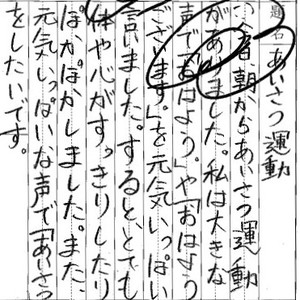 題名 あいさつ運動
今日、朝からあいさつ運動
がありました。私は大きな
声で「おはよう。」や「おはよう
ございます。」を元気いっぱい
言いました。すると、とても
体や心がすっきりしたり
ぽかぽかしました。また、
元気いっぱいな声で「あいさつ
をしたいです。